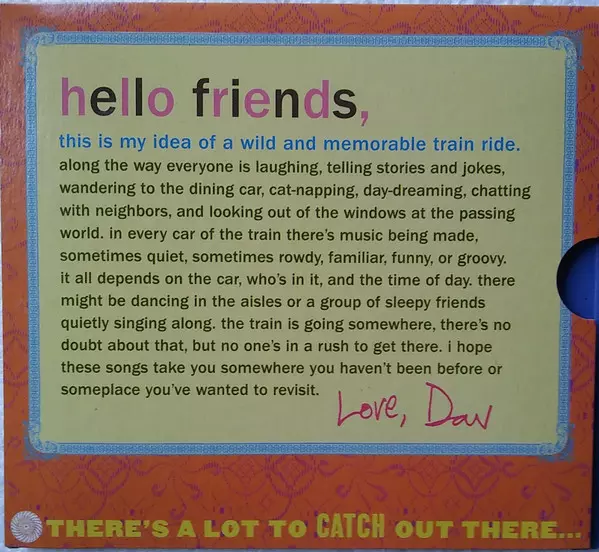 hello friends,
this is my idea of a wild and memorable train ride.
along the way everyone is laughing, telling stories and jokes,
wandering to the dining car, cat-napping, day-dreaming, chatting
with neighbors, and looking out of the windows at the passing
world. in every car of the train there's music being made,
sometimes quiet, sometimes rowdy, familiar, funny, or groovy.
it all depends on the car, who's in it, and the time of day. there
might be dancing in the aisles or a group of sleepy friends
quietly singing along. the train is going somewhere, there's no
doubt about that, but no one's in a rush to get there. i hope
these songs take you somewhere you haven't been before or
someplace you've wanted to revisit.
Love, Dan
THERE'S A LOT TO CATCH OUT THERE...